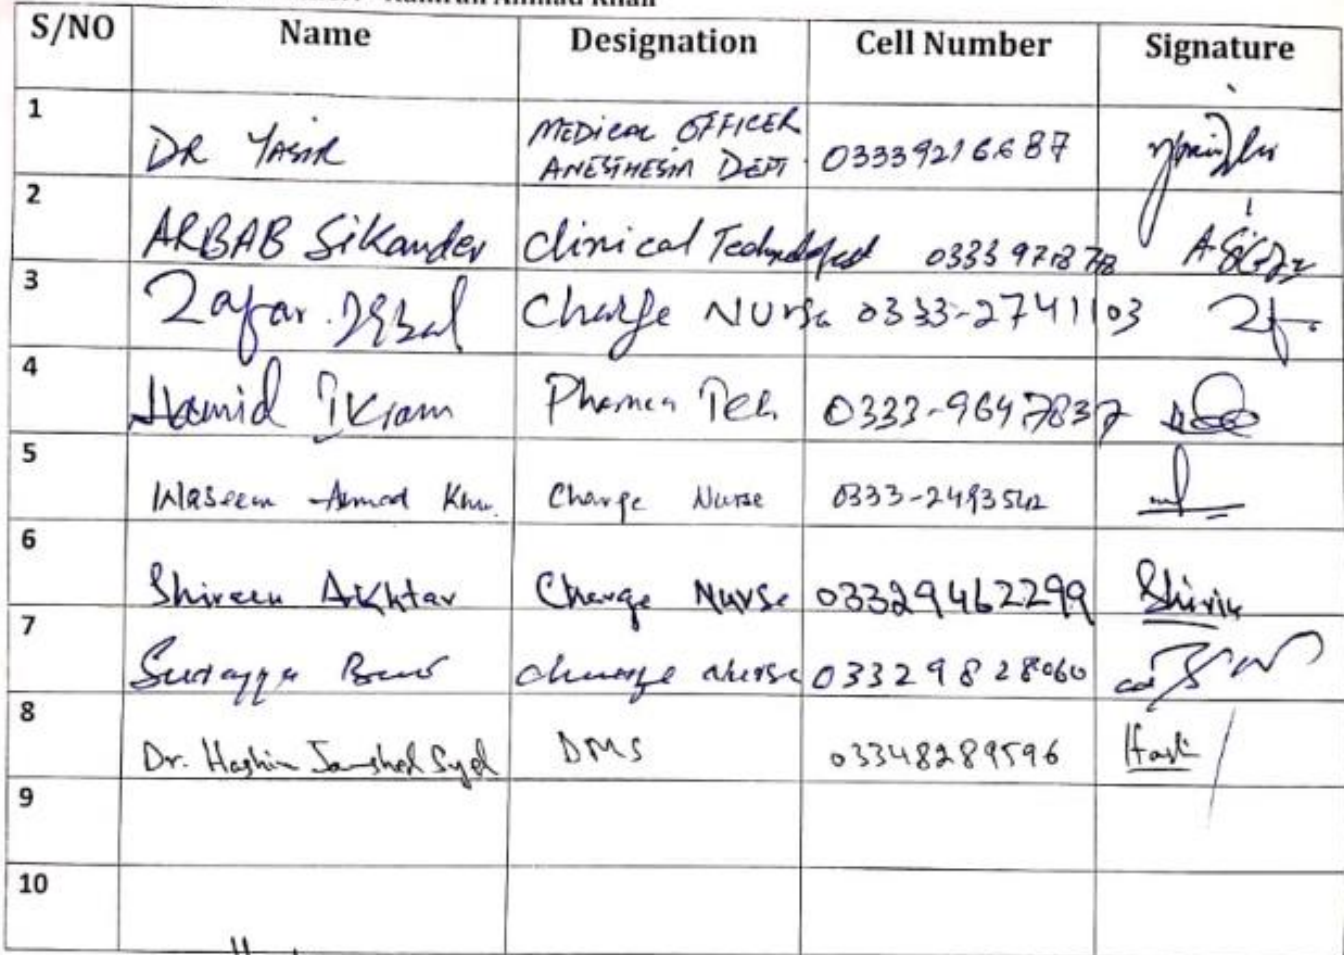 Kamran Ahmad Khan
S/NO Name Designation Cell Number Signature
1 DR YASIR MEDICAL OFFICER
ANESTHESIA DEPT 03339216687
2 ARBAB Sikander Clinical Technologist
3 Zafar Iqbal Charge Nurse 0333-2741103
4 Hamid Ikram Pharmacy Tech 0333-9647837
5 Waseem Ahmad Khan Charge Nurse
6 Shireen Akhtar Charge Nurse 03329462299 Shirin
7 Surayya Charge Nurse 03329828060
8 Dr. Hashim Jamshed Syed DMS 03348289596 Hash
9
10